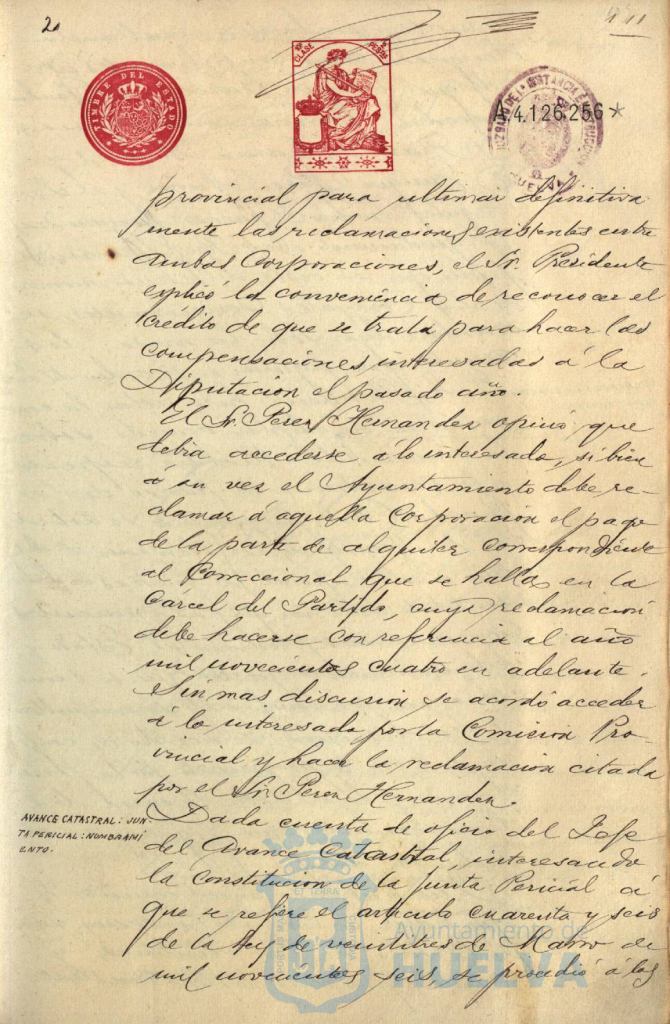 2
TIMBRE DEL ESTADO
CLASE
PESETAS
JUZGADO DE 1ª INSTANCIA E INSTRUCCION
HUELVA
A.4.126.256*
provincial para ultimar definitiva
mente las reclamaciones existentes entre
ambas Corporaciones, el Sr. Presidente
explicó la conveniencia de reconocer el
crédito de que se trata para hacer las
compensaciones interesadas á la
Diputacion el pasado año.
El Sr. Perez Hernandez opinó que
debia accederse á lo interesado, si bien
á su vez el Ayuntamiento debe re-
clamar á aquella Corporacion el pago
de la parte de alquiler correspondiente
al Correccional que se halla en la
Cárcel del Partido, cuya reclamacion
debe hacerse con referencia al año
mil novecientos cuatro en adelante.
Sin mas discusion se acordó acceder
á lo interesado por la Comision Pro-
vincial y hacer la reclamacion citada
por el Sr. Perez Hernandez.
AVANCE CATASTRAL: JUN
TA PERICIAL: NOMBRAMI
ENTO.
Dada cuenta de oficio del Jefe
del Avance Catrastral, interesando
la Constitucion de la Junta Pericial á
que se refiere el articulo cuarenta y seis
de la ley de veintitres de Marzo de
mil novecientos seis, se procedió á los
Ayuntamiento de
HUELVA